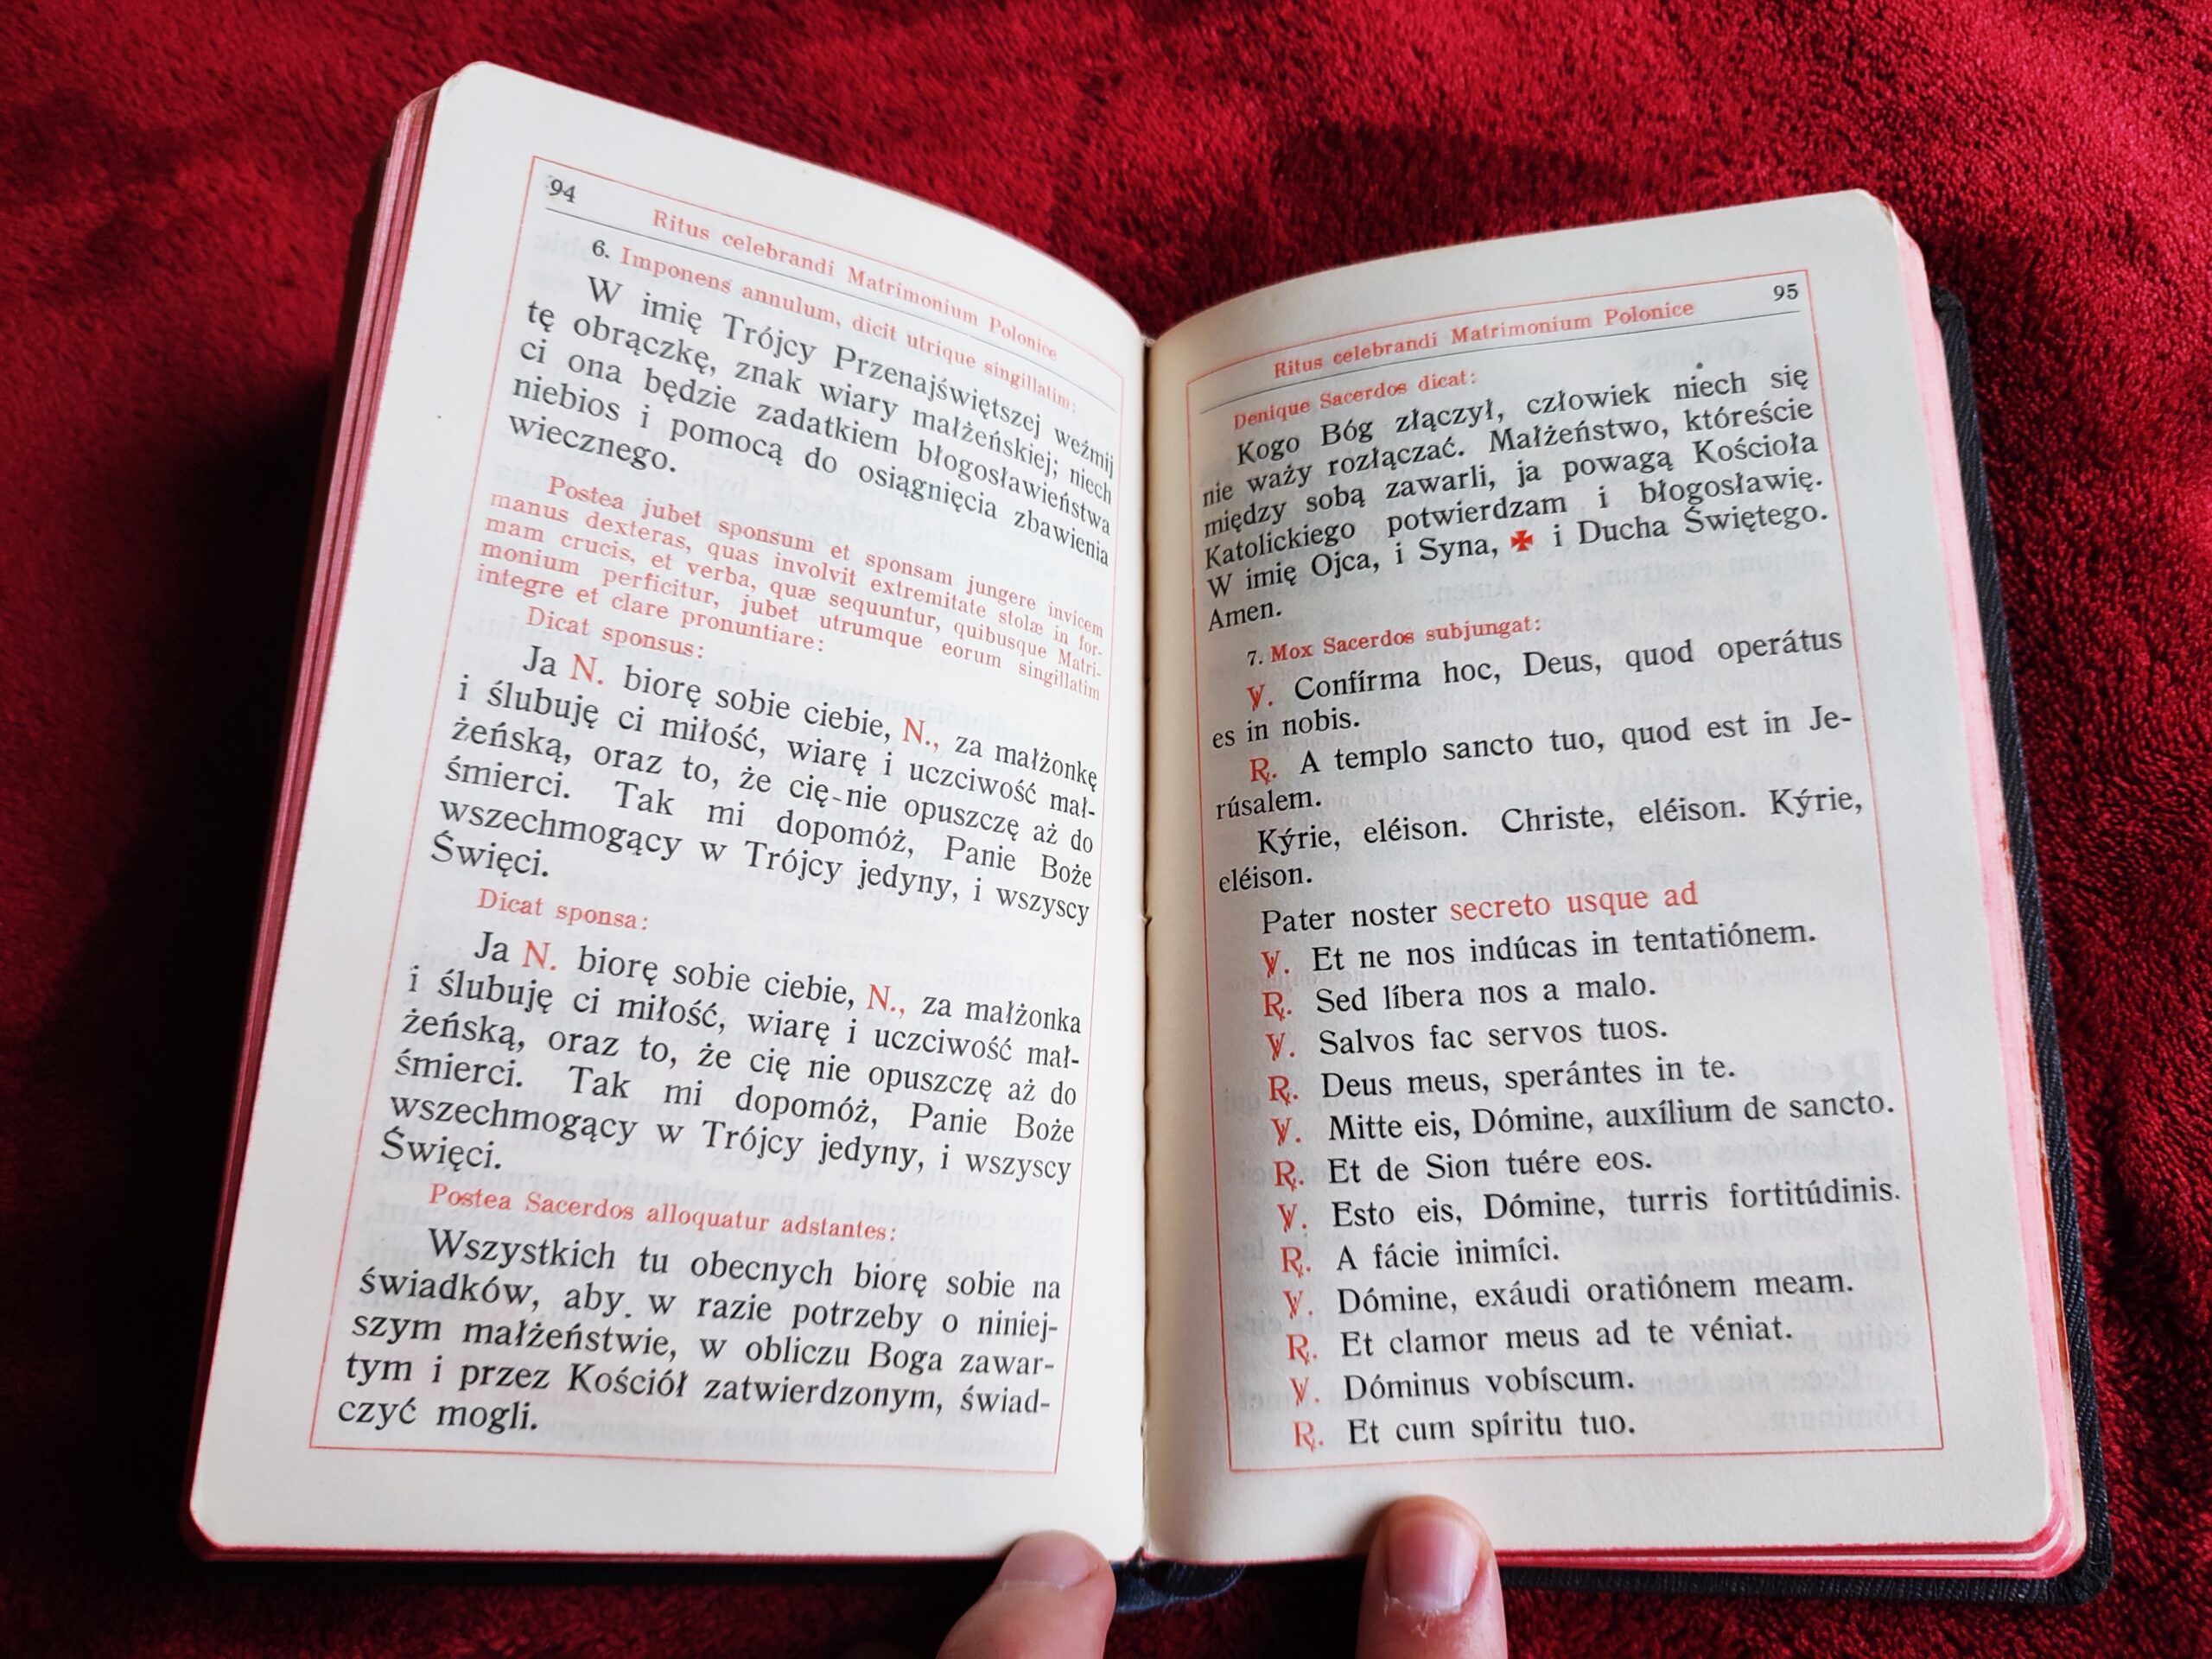 94
Ritus celebrandi Matrimonium Polonice
6. Imponens annulum, dicit utrique singillatim:
W imię Trójcy Przenajświętszej weźmij
tę obrączkę, znak wiary małżeńskiej; niech
ci ona będzie zadatkiem błogosławieństwa
niebios i pomocą do osiągnięcia zbawienia
wiecznego.
Postea jubet sponsum et sponsam jungere invicem
manus dexteras, quas involvit extremitate stolæ in for-
mam crucis, et verba, quæ sequuntur, quibusque Matri-
monium perficitur, jubet utrumque eorum singillatim
integre et clare pronuntiare:
Dicat sponsus:
Ja N. biorę sobie ciebie, N., za małżonkę
i ślubuję ci miłość, wiarę i uczciwość mał-
żeńską, oraz to, że cię-nie opuszczę aż do
śmierci. Tak mi dopomóż, Panie Boże
wszechmogący w Trójcy jedyny, i wszyscy
Święci.
Dicat sponsa:
Ja N. biorę sobie ciebie, N., za małżonka
i ślubuję ci miłość, wiarę i uczciwość mał-
żeńską, oraz to, że cię nie opuszczę aż do
śmierci. Tak mi dopomóż, Panie Boże
wszechmogący w Trójcy jedyny, i wszyscy
Święci.
Postea Sacerdos alloquatur adstantes:
Wszystkich tu obecnych biorę sobie na
świadków, aby w razie potrzeby o niniej-
szym małżeństwie, w obliczu Boga zawar-
tym i przez Kościół zatwierdzonym, świad-
czyć mogli.
Ritus celebrandi Matrimonium Polonice
95
Denique Sacerdos dicat:
Kogo Bóg złączył, człowiek niech się
nie waży rozłączać. Małżeństwo, któreście
między sobą zawarli, ja powagą Kościoła
Katolickiego potwierdzam i błogosławię.
W imię Ojca, i Syna, ✠ i Ducha Świętego.
Amen.
7. Mox Sacerdos subjungat:
℣. Confírma hoc, Deus, quod operátus
es in nobis.
℟. A templo sancto tuo, quod est in Je-
rúsalem.
Kýrie, eléison. Christe, eléison. Kýrie,
eléison.
Pater noster secreto usque ad
℣. Et ne nos indúcas in tentatiónem.
℟. Sed líbera nos a malo.
℣. Salvos fac servos tuos.
℟. Deus meus, sperántes in te.
℣. Mitte eis, Dómine, auxílium de sancto.
℟. Et de Sion tuére eos.
℣. Esto eis, Dómine, turris fortitúdinis.
℟. A fácie inimíci.
℣. Dómine, exáudi oratiónem meam.
℟. Et clamor meus ad te véniat.
℣. Dóminus vobíscum.
℟. Et cum spíritu tuo.